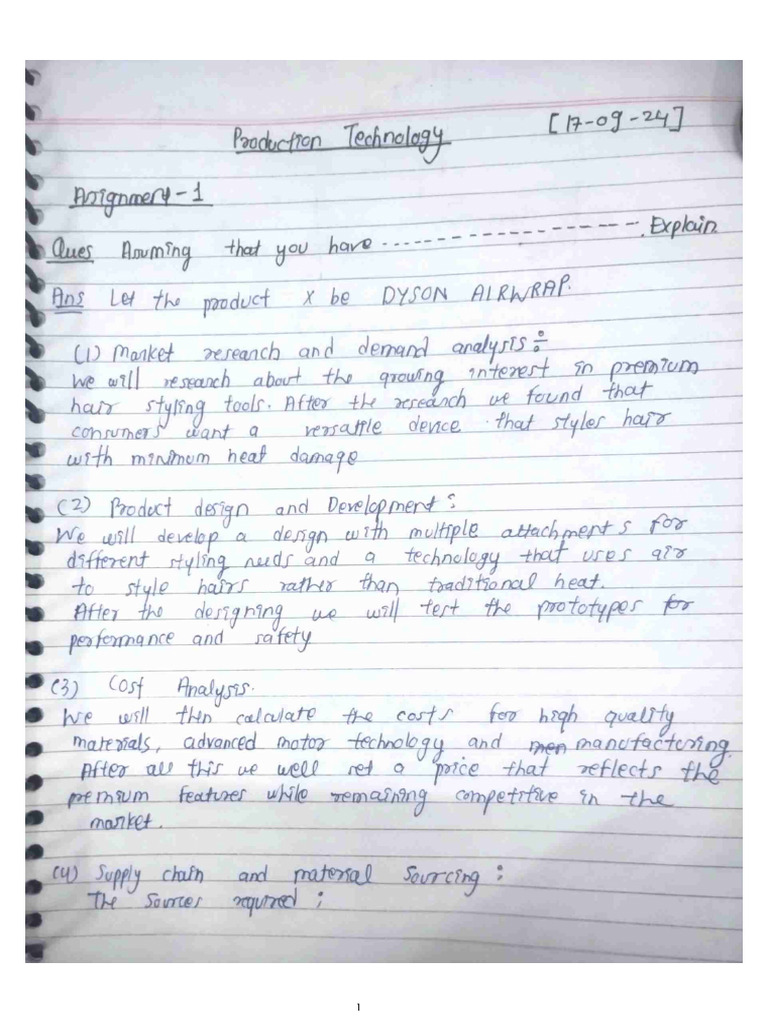 Production Technology [17-09-24]
Assignment-1
Ques Assuming that you have ------------------ . Explain
Ans Let the product X be DYSON AIRWRAP.
(1) Market research and demand analysis:
We will research about the growing interest in premium
hair styling tools. After the research we found that
consumers want a versatile device that styles hair
with minimum heat damage
(2) Product design and Development:
We will develop a design with multiple attachments for
different styling needs and a technology that uses air
to style hairs rather than traditional heat.
After the designing we will test the prototypes for
performance and safety
(3) Cost Analysis.
We will then calculate the costs for high quality
materials, advanced motor technology and manufacturing.
After all this we well set a price that reflects the
premium features while remaining competitive in the
market.
(4) Supply chain and material Sourcing:
The Sources required:
1